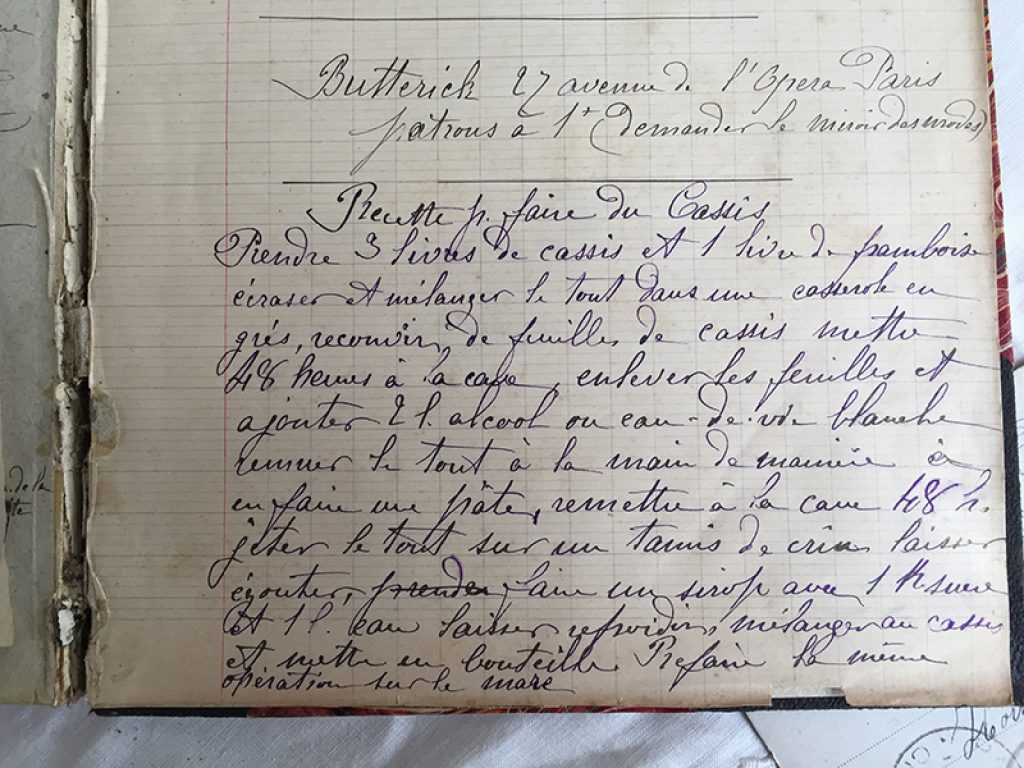 Butterick 27 avenue de l'Opera Paris
patrons à 1f (demander le miroir des modes)
Recette p. faire du Cassis
Prendre 3 livres de cassis et 1 livre de framboise
écraser et mélanger le tout dans une casserole en
grés, recouvrir de feuilles de cassis mettre
48 heures à la cave, enlever les feuilles et
ajouter 2 l. alcool ou eau-de-vie blanche
remuer le tout à la main de manière à
en faire une pâte, remettre à la cave 48 h.
jeter le tout sur un tamis de crin laisser
égouter, prendre faire un sirop avec 1 k sucre
et 1 l. eau laisser refroidir, mélanger au cassis
et mettre en bouteille Refaire la même
opération sur le marc
de la